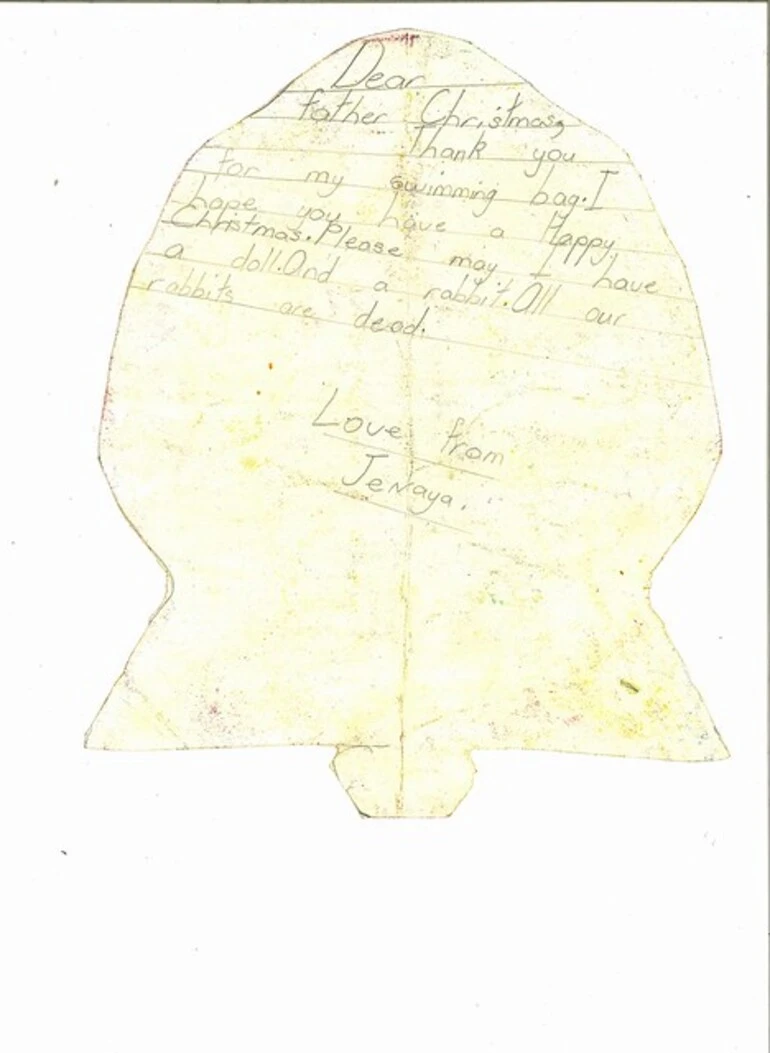 Dear
father Christmas,
Thank you
for my swimming bag. I
hope you have a Happy
Christmas. Please may I have
a doll. And a rabbit. All our
rabbits are dead.
Love from
JeNaya.